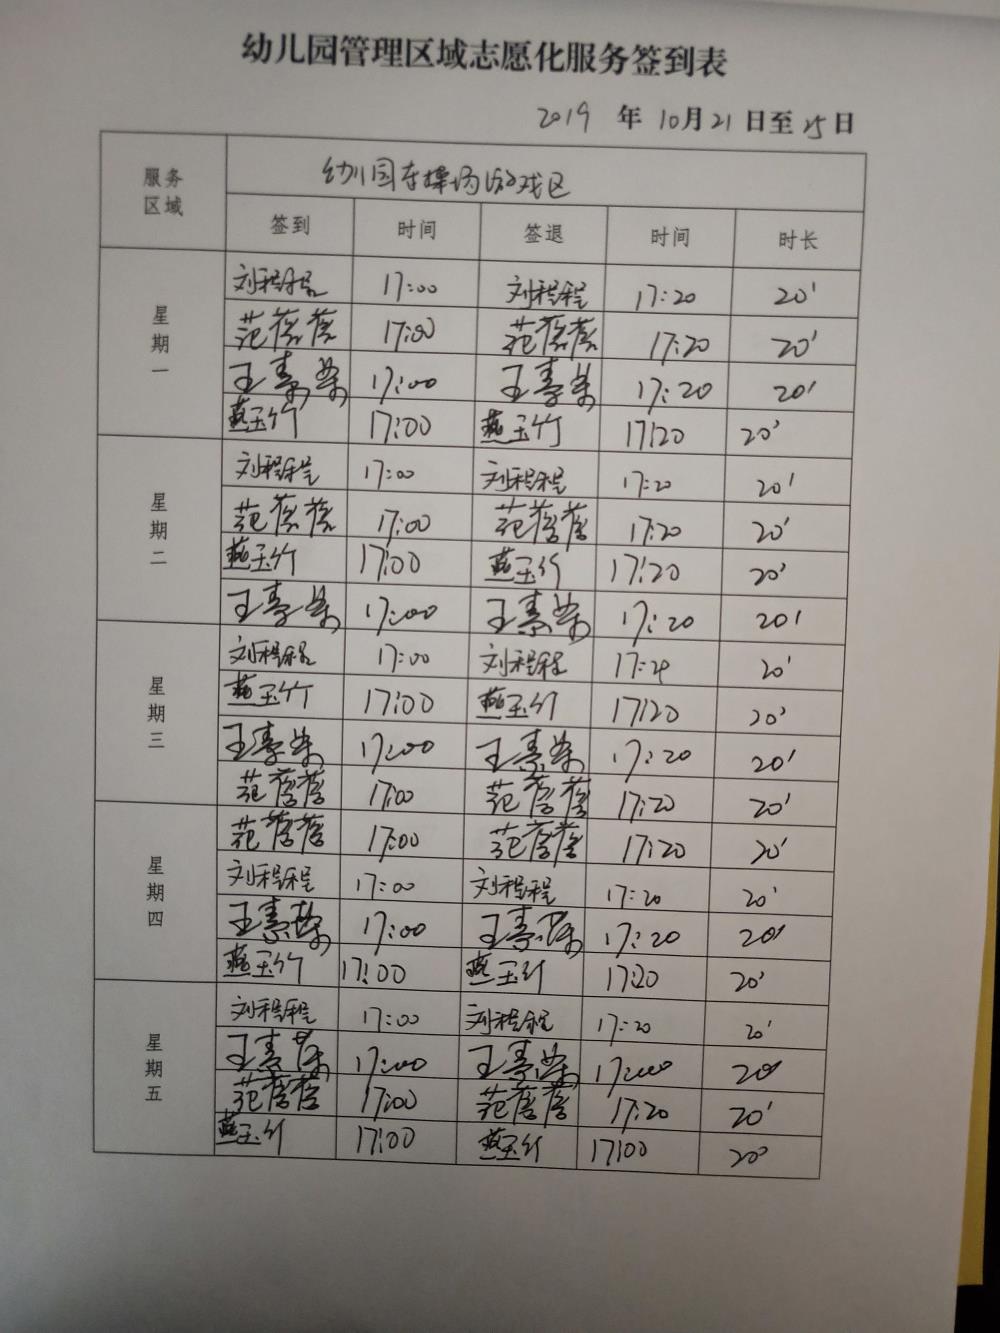 幼儿园管理区域志愿化服务签到表
2019 年 10月21日至25日
服务区域 幼儿园东操场游戏区
签到 时间 签退 时间 时长
星期一
刘程程 17:00 刘程程 17:20 20'
范蓉蓉 17:00 范蓉蓉 17:20 20'
王素荣 17:00 王素荣 17:20 20'
燕玉竹 17:00 燕玉竹 17:20 20'
星期二
刘程程 17:00 刘程程 17:20 20'
范蓉蓉 17:00 范蓉蓉 17:20 20'
燕玉竹 17:00 燕玉竹 17:20 20'
王素荣 17:00 王素荣 17:20 20'
星期三
刘程程 17:00 刘程程 17:20 20'
燕玉竹 17:00 燕玉竹 17:20 20'
王素荣 17:00 王素荣 17:20 20'
范蓉蓉 17:00 范蓉蓉 17:20 20'
星期四
范蓉蓉 17:00 范蓉蓉 17:20 20'
刘程程 17:00 刘程程 17:20 20'
王素荣 17:00 王素荣 17:20 20'
燕玉竹 17:00 燕玉竹 17:20 20'
星期五
刘程程 17:00 刘程程 17:20 20'
王素荣 17:00 王素荣 17:00 20'
范蓉蓉 17:00 范蓉蓉 17:20 20'
燕玉竹 17:00 燕玉竹 17:00 20'